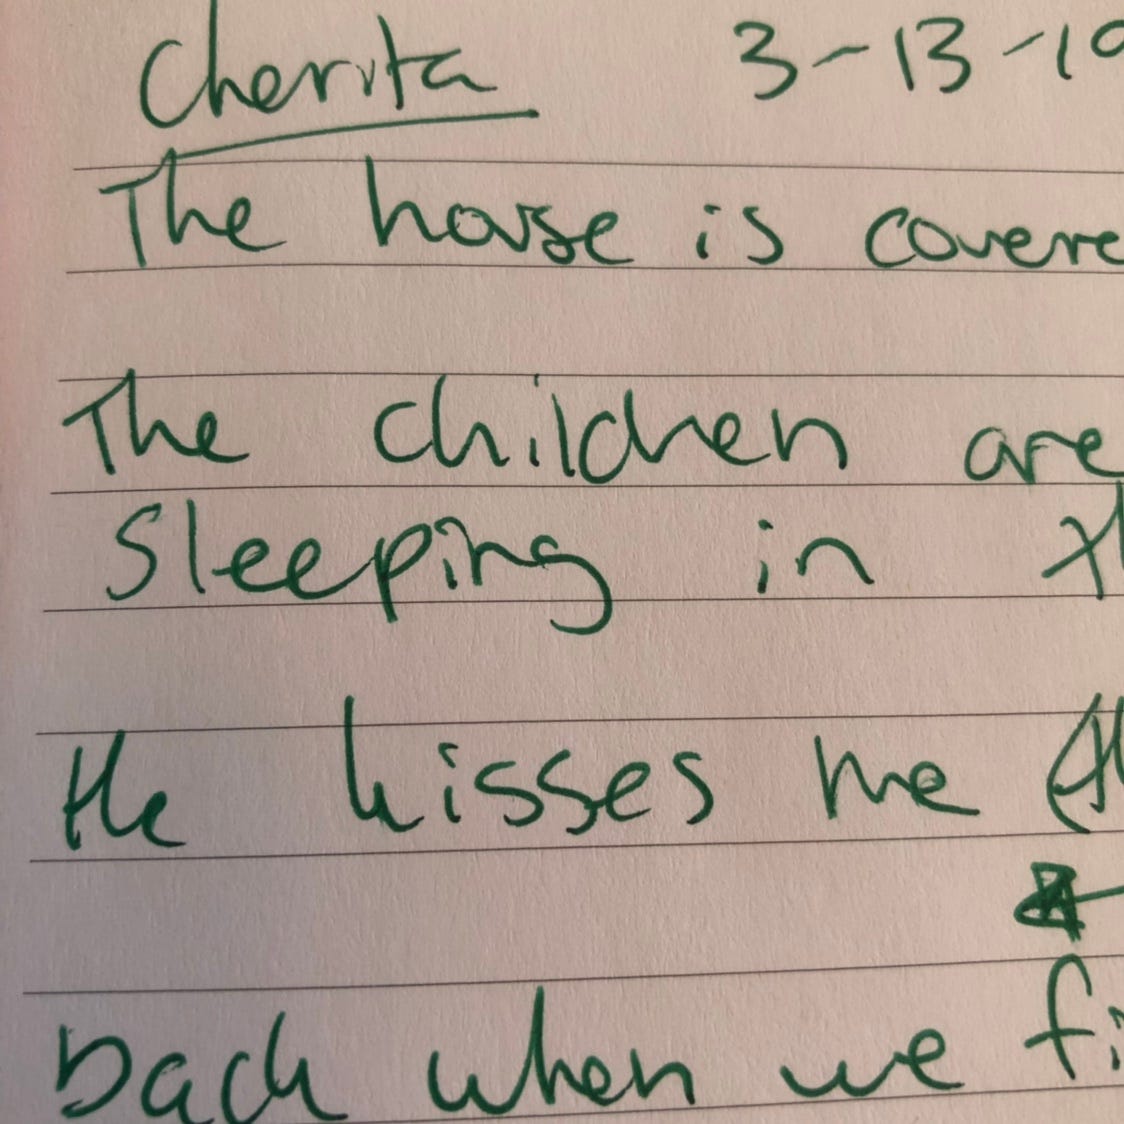 Cherita 3-13-19
The house is covere
The children are
Sleeping in th
He kisses me
back when we fi